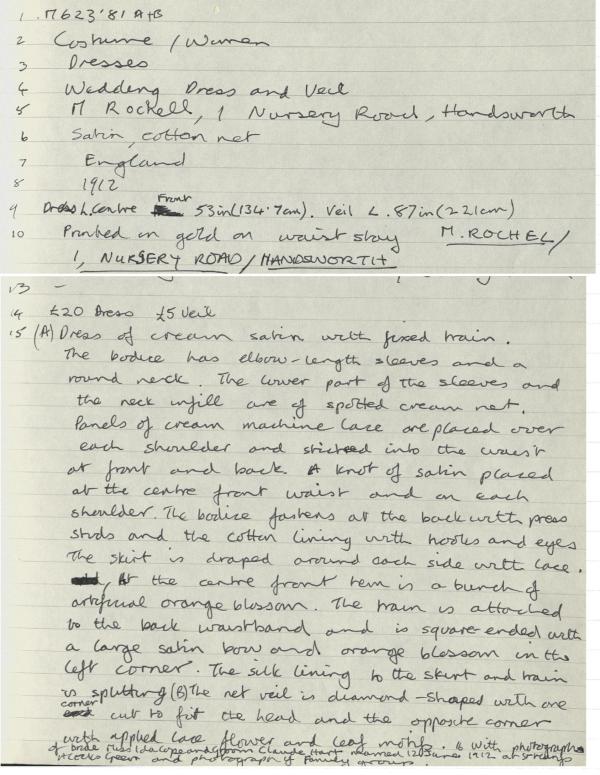 1 M623'81 A+B
2 Costume / Women
3 Dresses
4 Wedding Dress and Veil
5 M Rockell, 1 Nursery Road, Handsworth
6 Satin, cotton net
7 England
8 1912
9 Dress L. Centre Front 53in (134.7cm). Veil L. 87in (221cm)
10 Printed in gold on waist stay M. ROCHEL/
1, NURSERY ROAD/HANDSWORTH
13 -
14 £20 Dress £5 Veil
15 (A) Dress of cream satin with fixed train.
The bodice has elbow-length sleeves and a
round neck. The lower part of the sleeves and
the neck infill are of spotted cream net.
Panels of cream machine lace are placed over
each shoulder and stitched into the waist
at front and back. A knot of satin placed
at the centre front waist and on each
shoulder. The bodice fastens at the back with press
studs and the cotton lining with hooks and eyes
The skirt is draped around each side with lace.
At the centre front hem is a bunch of
artificial orange blossom. The train is attached
to the back waistband and is square-ended with
a large satin bow and orange blossom in the
left corner. The silk lining to the skirt and train
is splitting (B) The net veil is diamond-shaped with one
corner cut to fit the head and the opposite corner
with applied lace flower and leaf motifs. 16 With photographs
of bride Miss Ida Cope and Groom Claude Hart married 12 June 1912 at
Green and photograph of Family group.